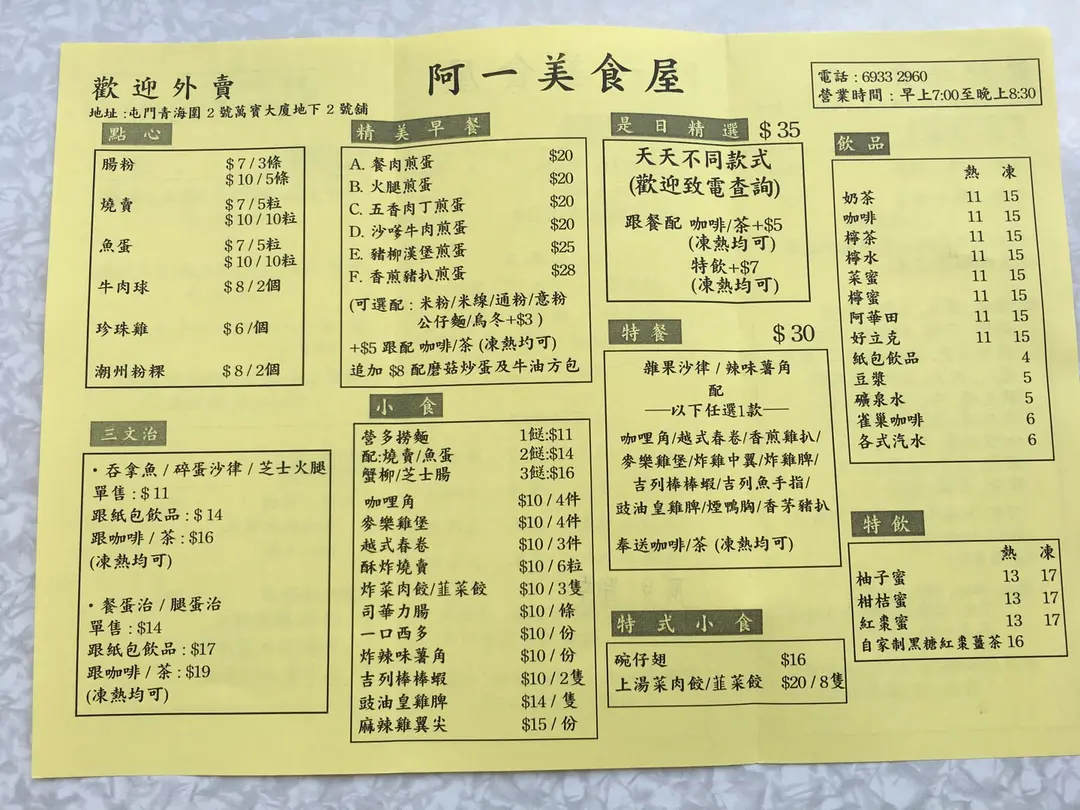 歡迎外賣
阿一美食屋
電話：6933 2960
營業時間：早上7:00至晚上8:30
地址:屯門青海圍 2 號萬寶大廈地下 2 號舖
點心
腸粉 $7/3條
$10/5條
燒賣 $7/5粒
$10/10粒
魚蛋 $7/5粒
$10/10粒
牛肉球 $8/2個
珍珠雞 $6/個
潮州粉粿 $8/2個
三文治
・吞拿魚 / 碎蛋沙律 / 芝士火腿
單售：$11
跟紙包飲品：$14
跟咖啡 / 茶：$16
(凍熱均可)
・餐蛋治 / 腿蛋治
單售：$14
跟紙包飲品：$17
跟咖啡 / 茶：$19
(凍熱均可)
精美早餐
A. 餐肉煎蛋 $20
B. 火腿煎蛋 $20
C. 五香肉丁煎蛋 $20
D. 沙嗲牛肉煎蛋 $20
E. 豬柳漢堡煎蛋 $25
F. 香煎豬扒煎蛋 $28
(可選配：米粉/米線/通粉/意粉
公仔麵/烏冬+$3 )
+$5 跟配 咖啡/茶 (凍熱均可)
追加 $8 配磨菇炒蛋及牛油方包
小食
營多撈麵 1餸:$11
配:燒賣/魚蛋 2餸:$14
蟹柳/芝士腸 3餸:$16
咖哩角 $10 / 4件
麥樂雞堡 $10 / 4件
越式春卷 $10 / 3件
酥炸燒賣 $10 / 6粒
炸菜肉餃/韮菜餃 $10 / 3隻
司華力腸 $10 / 條
一口西多 $10 / 份
炸辣味薯角 $10 / 份
吉列棒棒蝦 $10 / 2隻
豉油皇雞脾 $14 / 隻
麻辣雞翼尖 $15 / 份
是日精選 $35
天天不同款式
(歡迎致電查詢)
跟餐配 咖啡/茶+$5
(凍熱均可)
特飲+$7
(凍熱均可)
特餐 $30
雜果沙律 / 辣味薯角
配
──以下任選1款──
咖哩角/越式春卷/香煎雞扒/
麥樂雞堡/炸雞中翼/炸雞脾/
吉列棒棒蝦/吉列魚手指/
豉油皇雞脾/煙鴨胸/香茅豬扒
奉送咖啡/茶 (凍熱均可)
特式小食
碗仔翅 $16
上湯菜肉餃/韮菜餃 $20/8隻
飲品
熱 凍
奶茶 11 15
咖啡 11 15
檸茶 11 15
檸水 11 15
菜蜜 11 15
檸蜜 11 15
阿華田 11 15
好立克 11 15
紙包飲品 4
豆漿 5
礦泉水 5
雀巢咖啡 6
各式汽水 6
特飲
熱 凍
柚子蜜 13 17
柑桔蜜 13 17
紅棗蜜 13 17
自家制黑糖紅棗薑茶 16